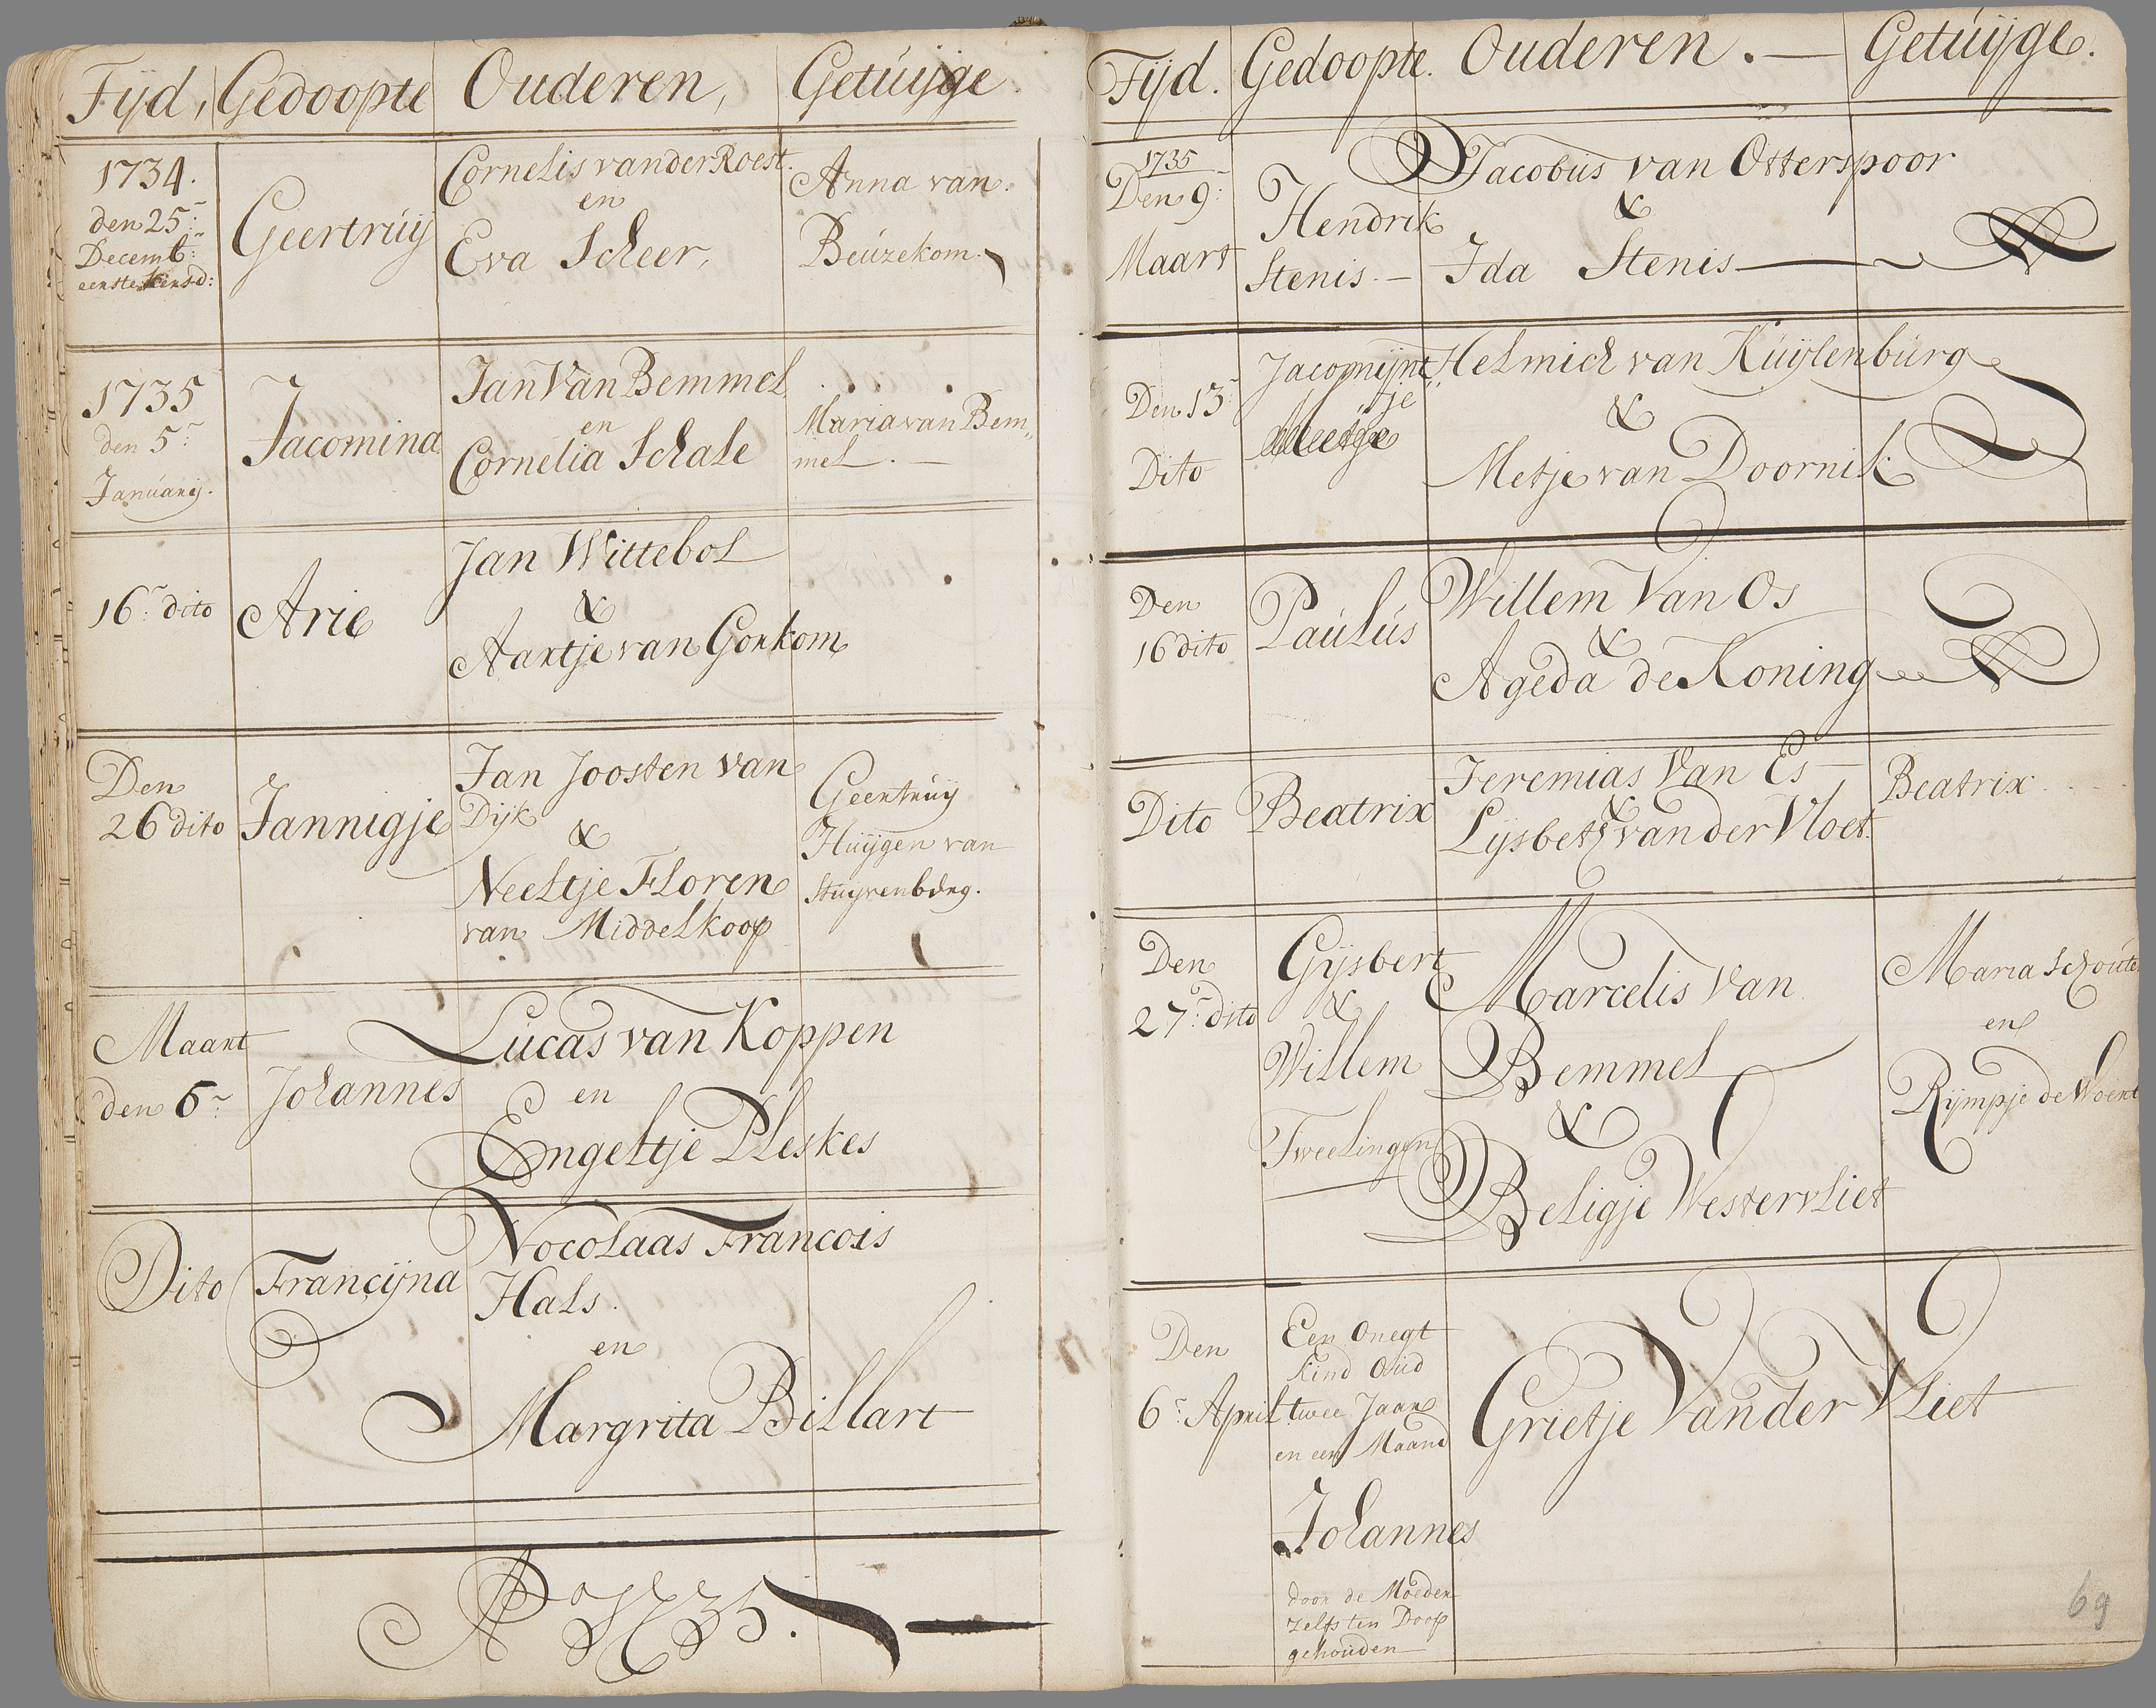 Tijd, Gedoopte Ouderen, Getuijge.
1734.
den 25:
Decemb:
eerste kersd:
Geertruij
Cornelis van der Roest.
en
Eva Scheer,
Anna van
Beuzekom.
1735
den 5:
Januarij.
Jacomina
Jan Van Bemmel
en
Cornelia Schale
Maria van Bem„
mel. —
16: dito
Arie
Jan Wittebol
&
Aartje van Gorkom
Den
26 dito
Jannigje
Jan Joosten van
Dijk
&
Neeltje Floren
van Middelkoop
Geertruij
Huijgen van
Stuijvenberg.
Maart
den 6:
Johannes
Lucas van Koppen
en
Engeltje Pleskes
Dito
Francijna
Nocolaas Francois
Hals.
en
Margrita Billart
Aº 1735.
Tijd. Gedoopte. Ouderen. — Getuijge.
1735
Den 9:
Maart
Hendrik
Stenis. —
Jacobus van Osterspoor
&
Ida Stenis
Den 13:
Dito
Jacomijnt„
je
Helmich van Kuijlenburg
&
Metje van Doornik
Den
16 dito
Paulus
Willem Van Os
&
Ageda de Koning
Dito
Beatrix
Jeremias Van Es
&
Lijsbeth van der Vloet.
Beatrix
Den
27: dito
Gijsbert
&
Willem
Tweelingen
Marcelis Van
Bemmel
&
Beligje Westervliet
Maria Schoute
en
Rijmpje de Weert
Den
6: April
Een Onegt
kind Oud
twee Jaar
en een Maand
Johannes
door de Moeder
zelfs ten Doop
gehouden
Grietje Van der Vliet
69